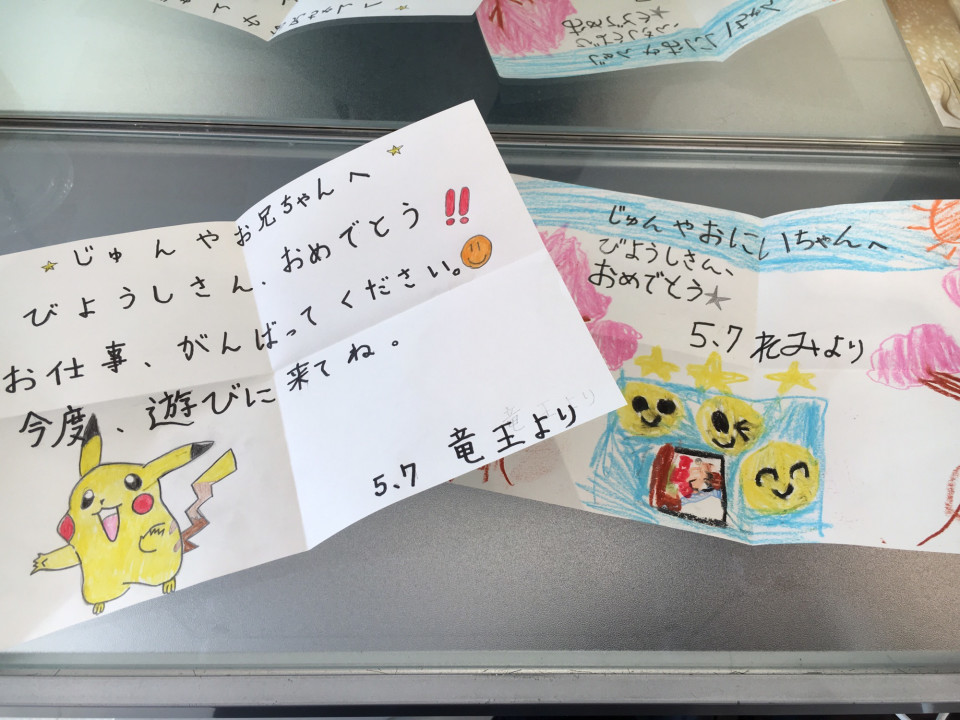 じゅんやお兄ちゃんへ
びようしさん、おめでとう!!
お仕事、がんばってください。
今度、遊びに来てね。
5.7 竜王より
じゅんやおにいちゃんへ
びようしさん、
おめでとう★
5.7 れみより